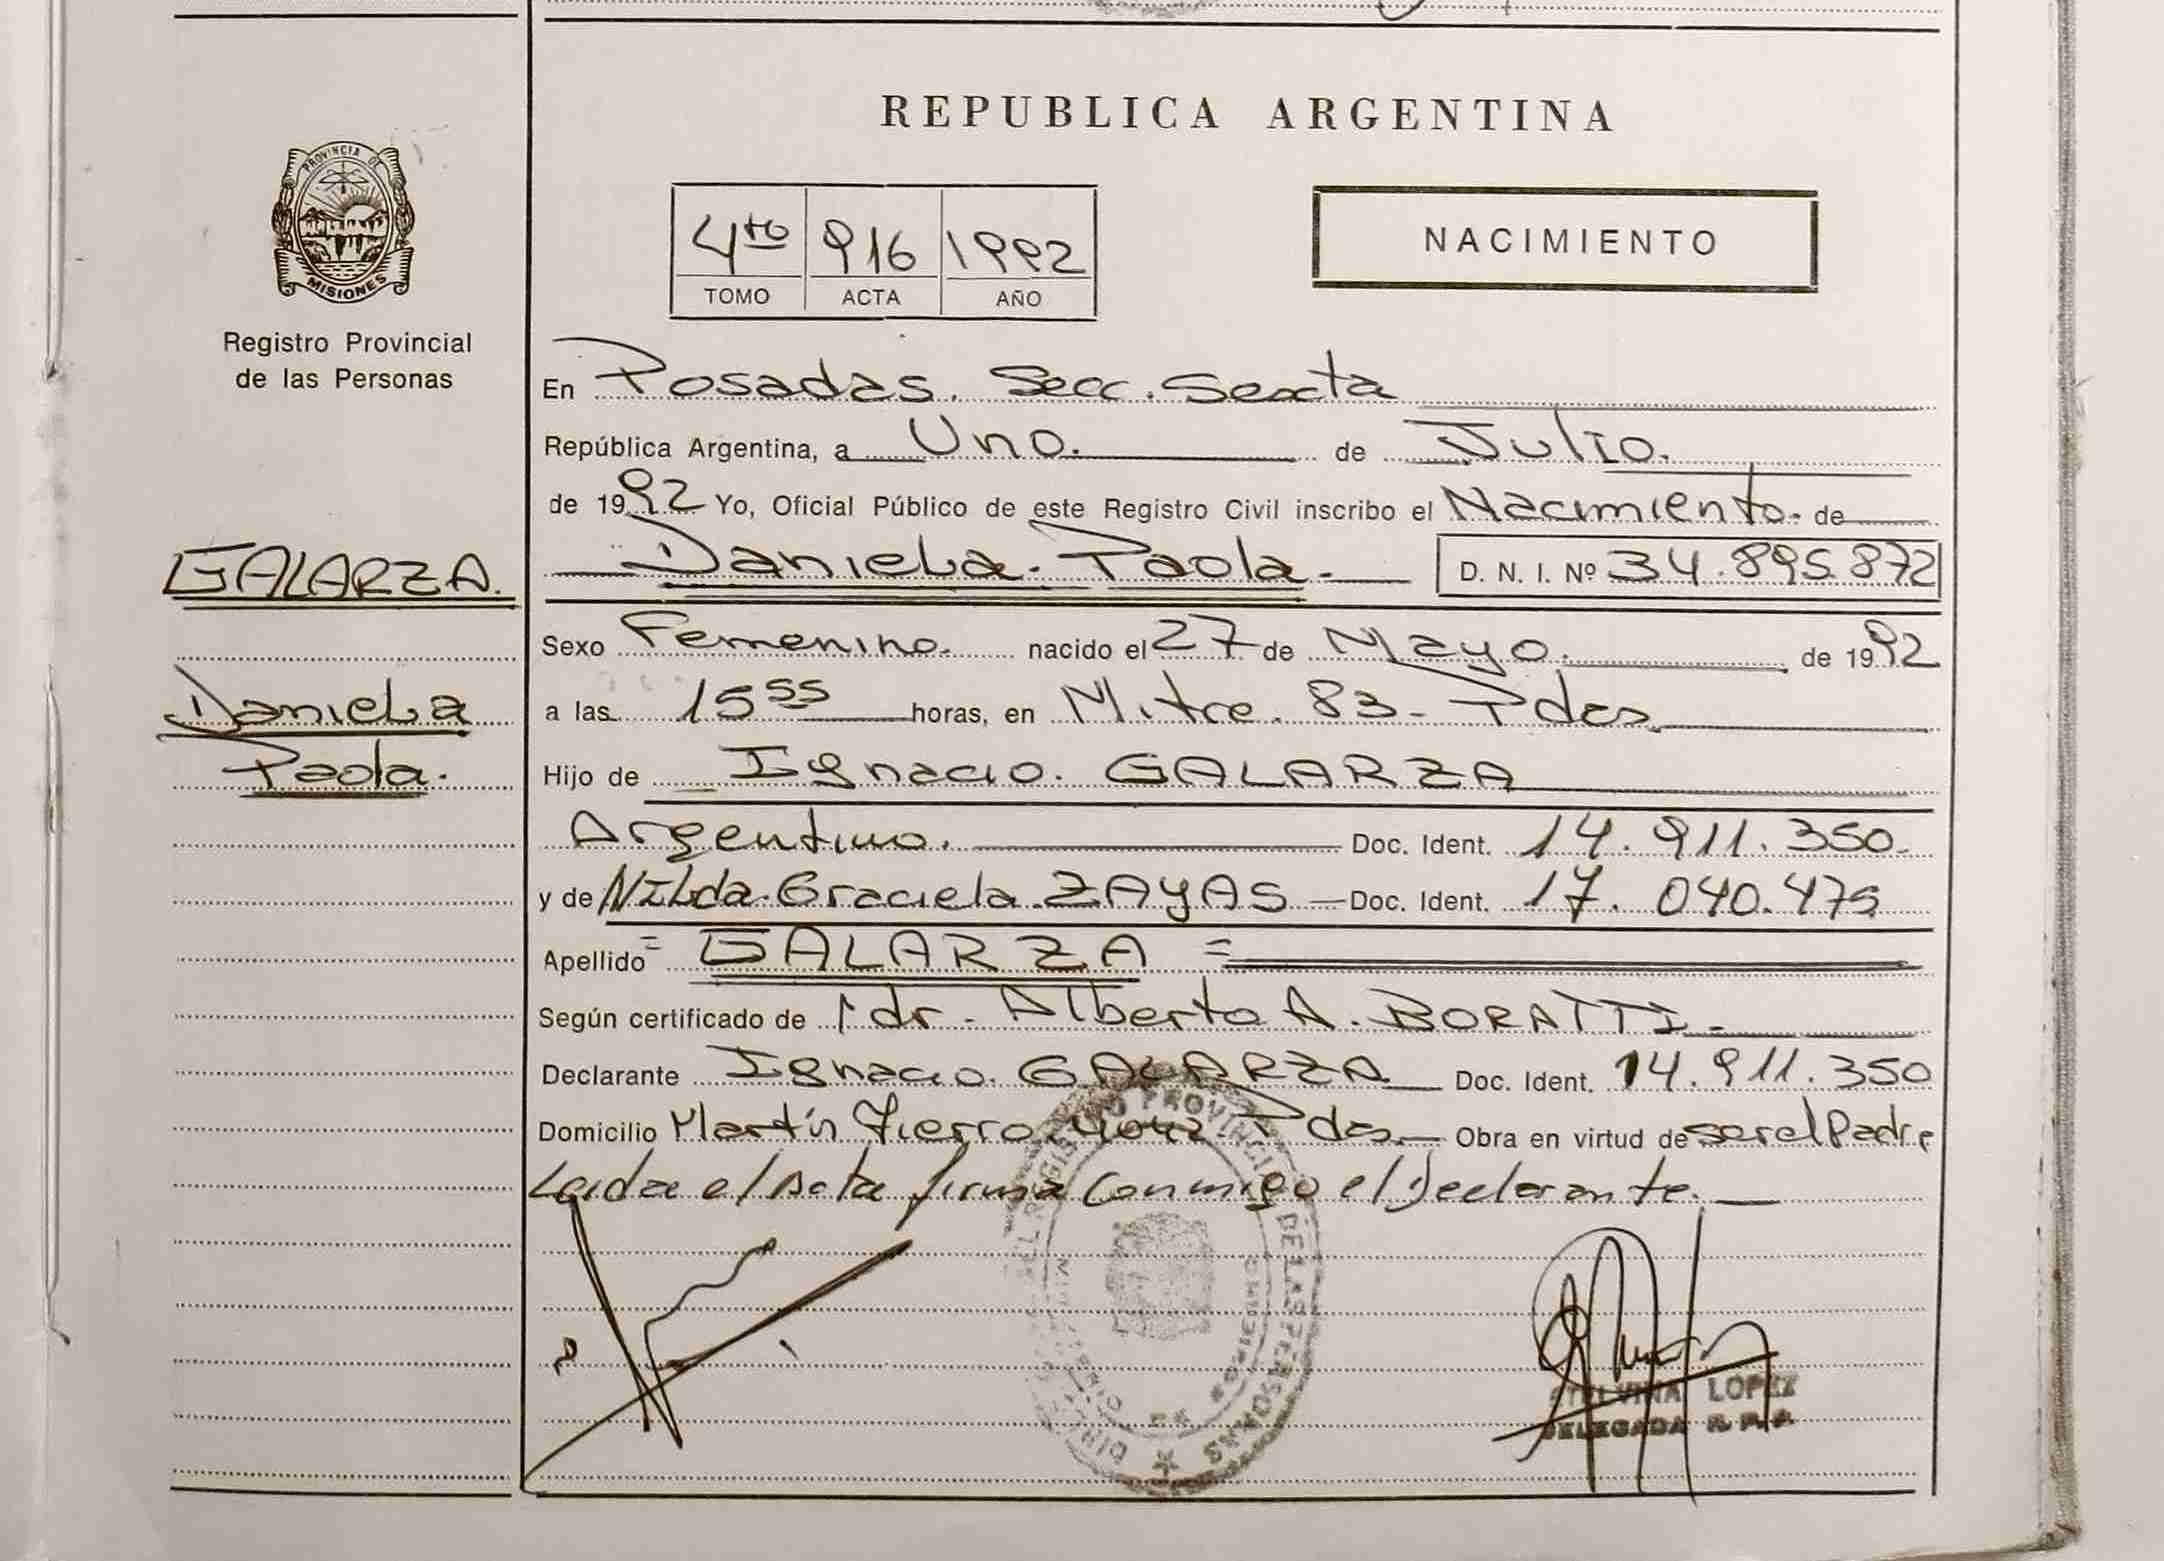 REPUBLICA ARGENTINA
PROVINCIA DE
MISIONES
Registro Provincial
de las Personas
4to 916 1992
TOMO ACTA AÑO
NACIMIENTO
En Posadas. Secc. Sexta
República Argentina, a Uno. de Julio.
de 1992 Yo, Oficial Público de este Registro Civil inscribo el Nacimiento. de
GALARZA.
Daniela
Paola.
Daniela. Paola. D. N. I. Nº 34.895.872
Sexo Femenino. nacido el 27 de Mayo. de 1992
a las 15 55 horas, en Mitre. 83 - Pdas
Hijo de Ignacio. GALARZA
Argentino. Doc. Ident. 14.911.350
y de Nilda. Graciela. ZAYAS Doc. Ident. 17.040.475
Apellido = GALARZA =
Según certificado de dr. Alberto A. BORATTI.
Declarante Ignacio. GALARZA Doc. Ident. 14.911.350
Domicilio Martín Fierro Pdas. Obra en virtud de ser el Padre
Leida el Acta firma conmigo el Declarante.
REGISTRO PROVINCIAL DE LAS PERSONAS
LOPEZ
DELEGADA R. P. P.